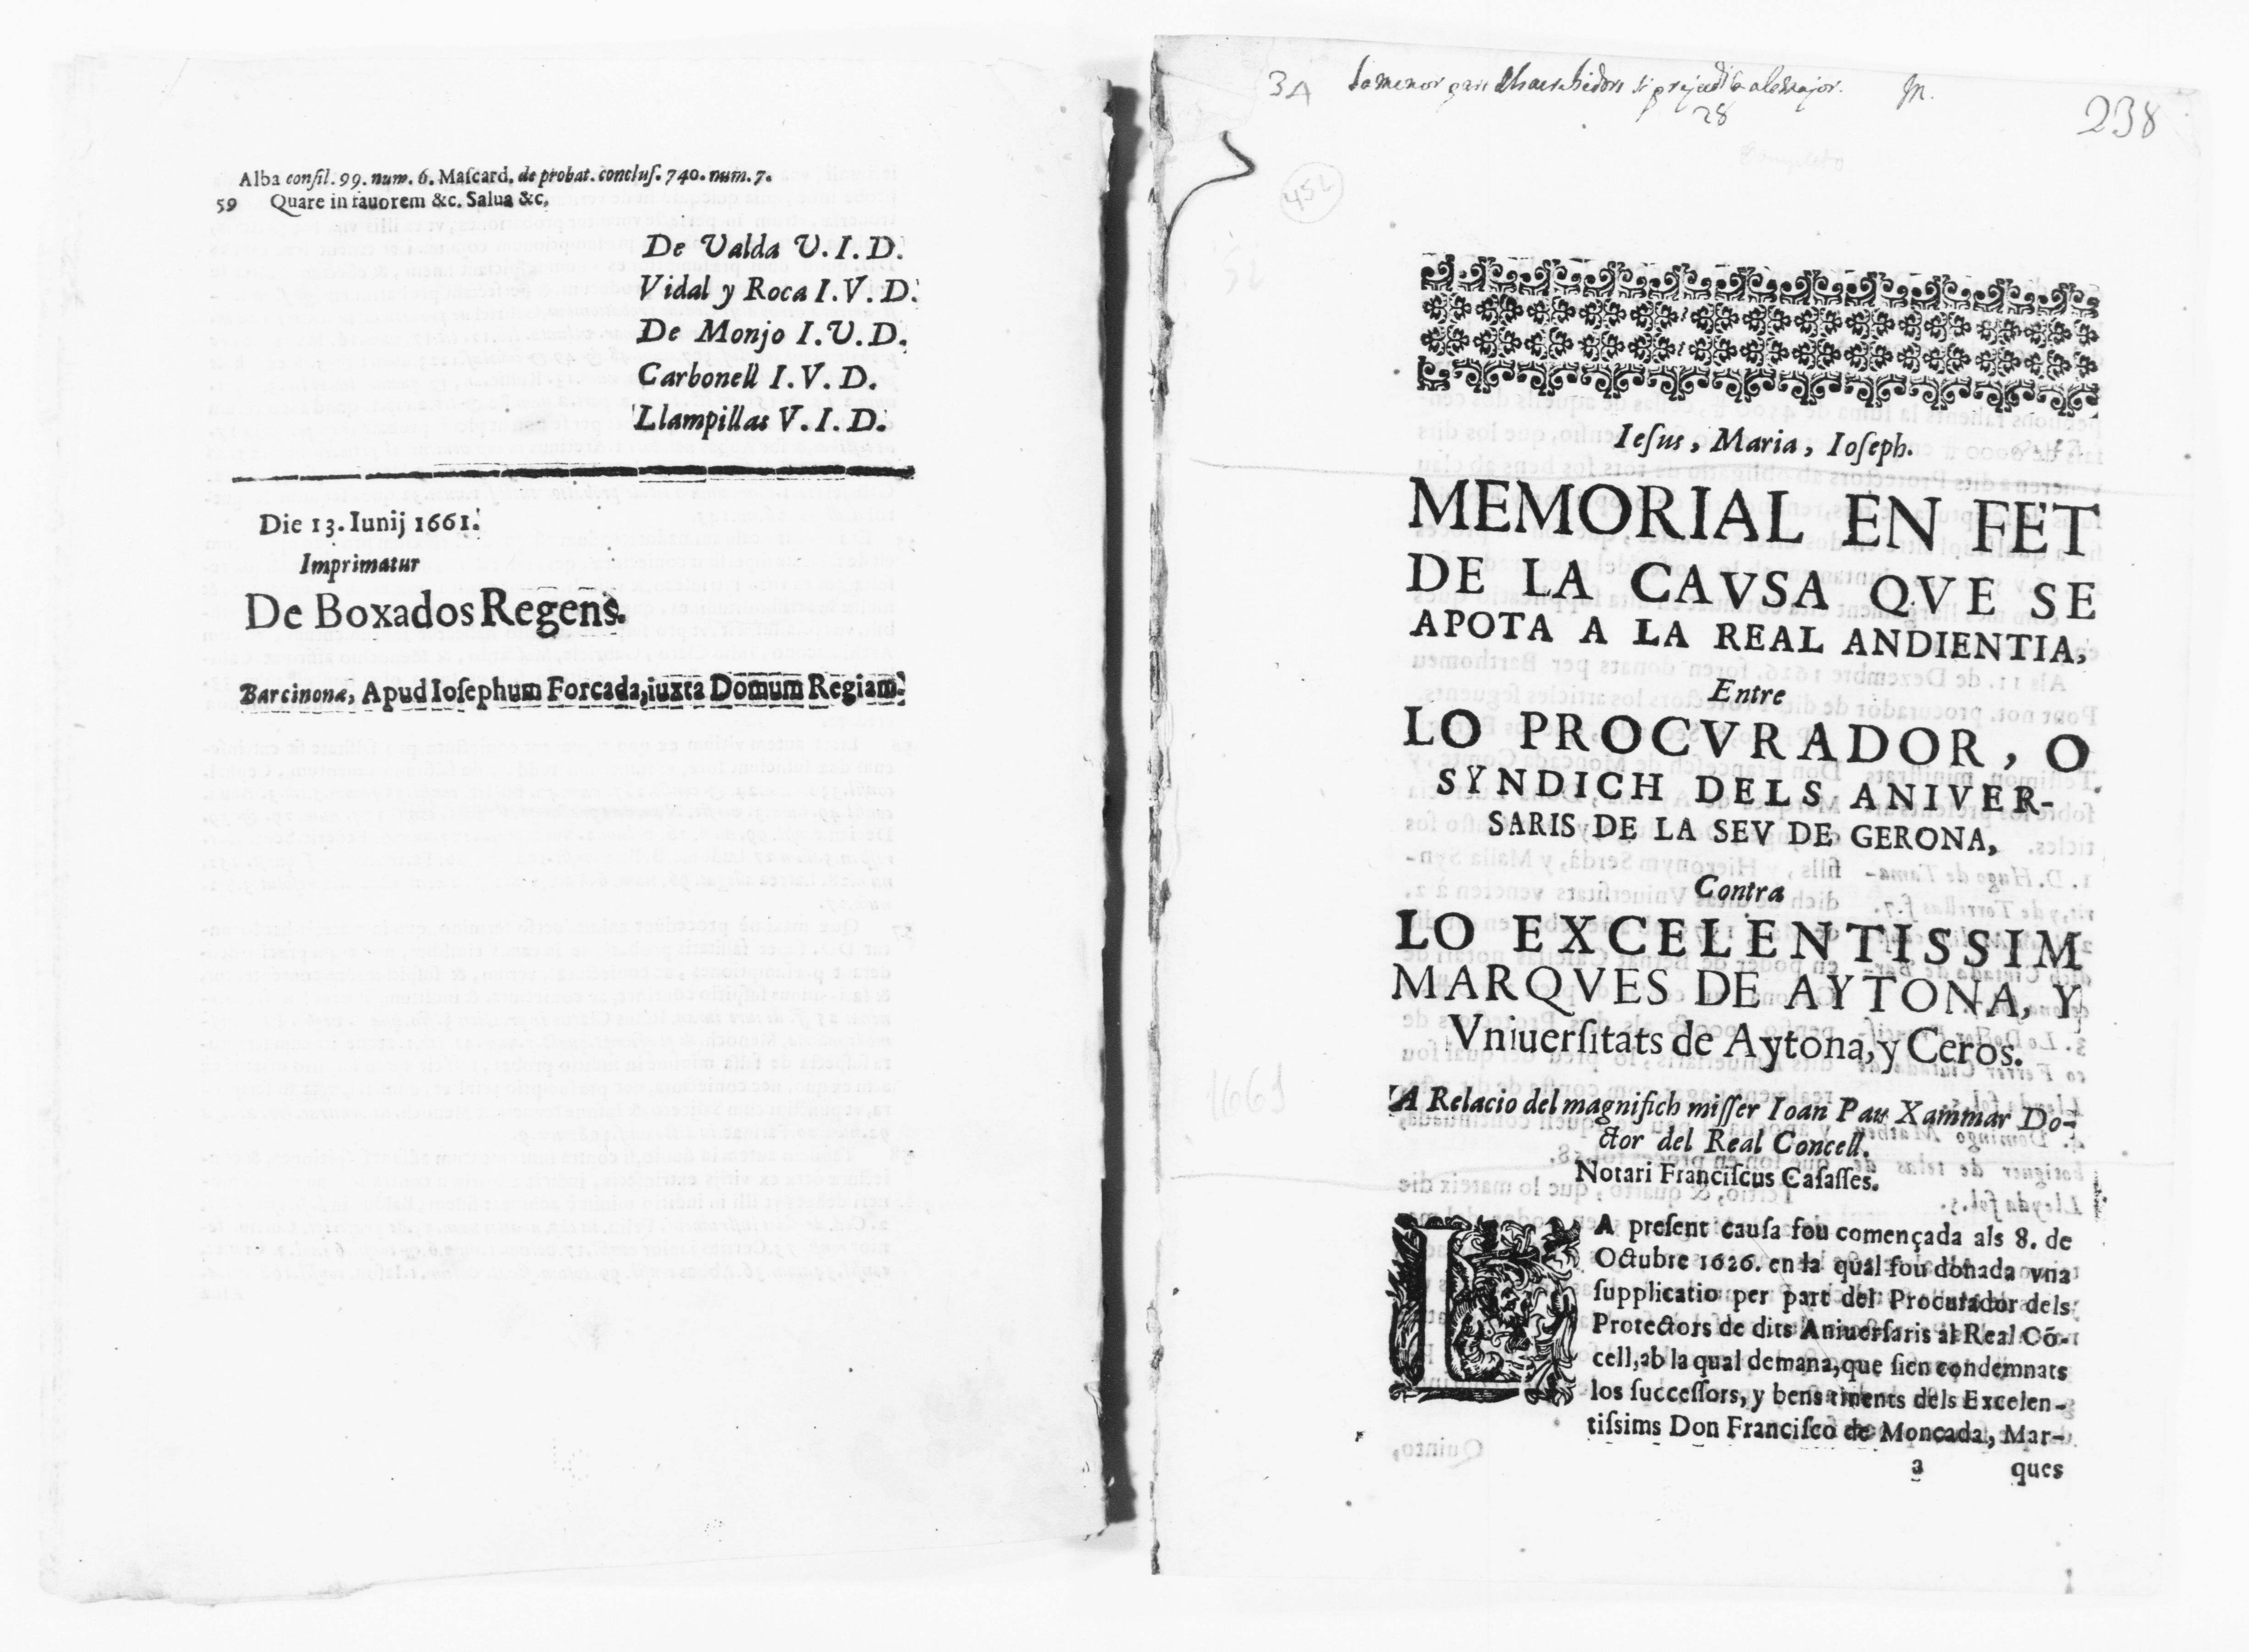 Alba consil. 99. num. 6. Mascard. de probat. conclus. 740. num. 7.
59 Quare in fauorem &c. Salua &c.
De Valda V. I. D.
Vidal y Roca I. V. D.
De Monjo I. V. D.
Carbonell I. V. D.
Llampillas V. I. D.
Die 13. Iunij 1661.
Imprimatur
De Boxados Regens.
Barcinonæ, Apud Iosephum Forcada, iuxta Domum Regiam.
34
28
238
452
Iesus, Maria, Ioseph.
MEMORIAL EN FET
DE LA CAVSA QVE SE
APOTA A LA REAL ANDIENTIA,
Entre
LO PROCVRADOR, O
SYNDICH DELS ANIVER-
SARIS DE LA SEV DE GERONA,
Contra
LO EXCELENTISSIM
MARQVES DE AYTONA, Y
Vniuersitats de Aytona, y Ceros.
A Relacio del magnifich misser Ioan Pau Xammar Do-
ctor del Real Concell.
Notari Franciscus Casasses.
LA present causa fou començada als 8. de
Octubre 1626. en la qual fou donada vna
supplicatio per part del Procurador dels
Protectors de dits Aniuersaris al Real Cō-
cell, ab la qual demana, que sien condemnats
los successors, y bens tinents dels Excelen-
tissims Don Francisco de Moncada, Mar-
a ques